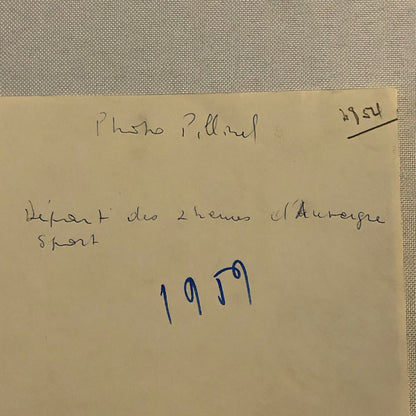 Photo Pillinel
2954
Départ des 2 heures d'Auvergne
Sport
1959